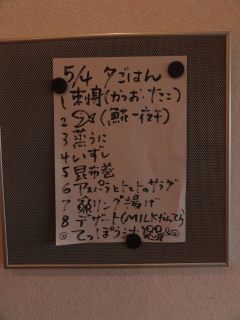 5/4 夕ごはん
1 刺身(かつお・たこ)
2 (鯡一夜干)
3 蒸うに
4 いずし
5 昆布巻
6 アスパラとトマトのサラダ
7 リング揚げ
8 デザート(MILKかんてん)
◎ てっぽう汁